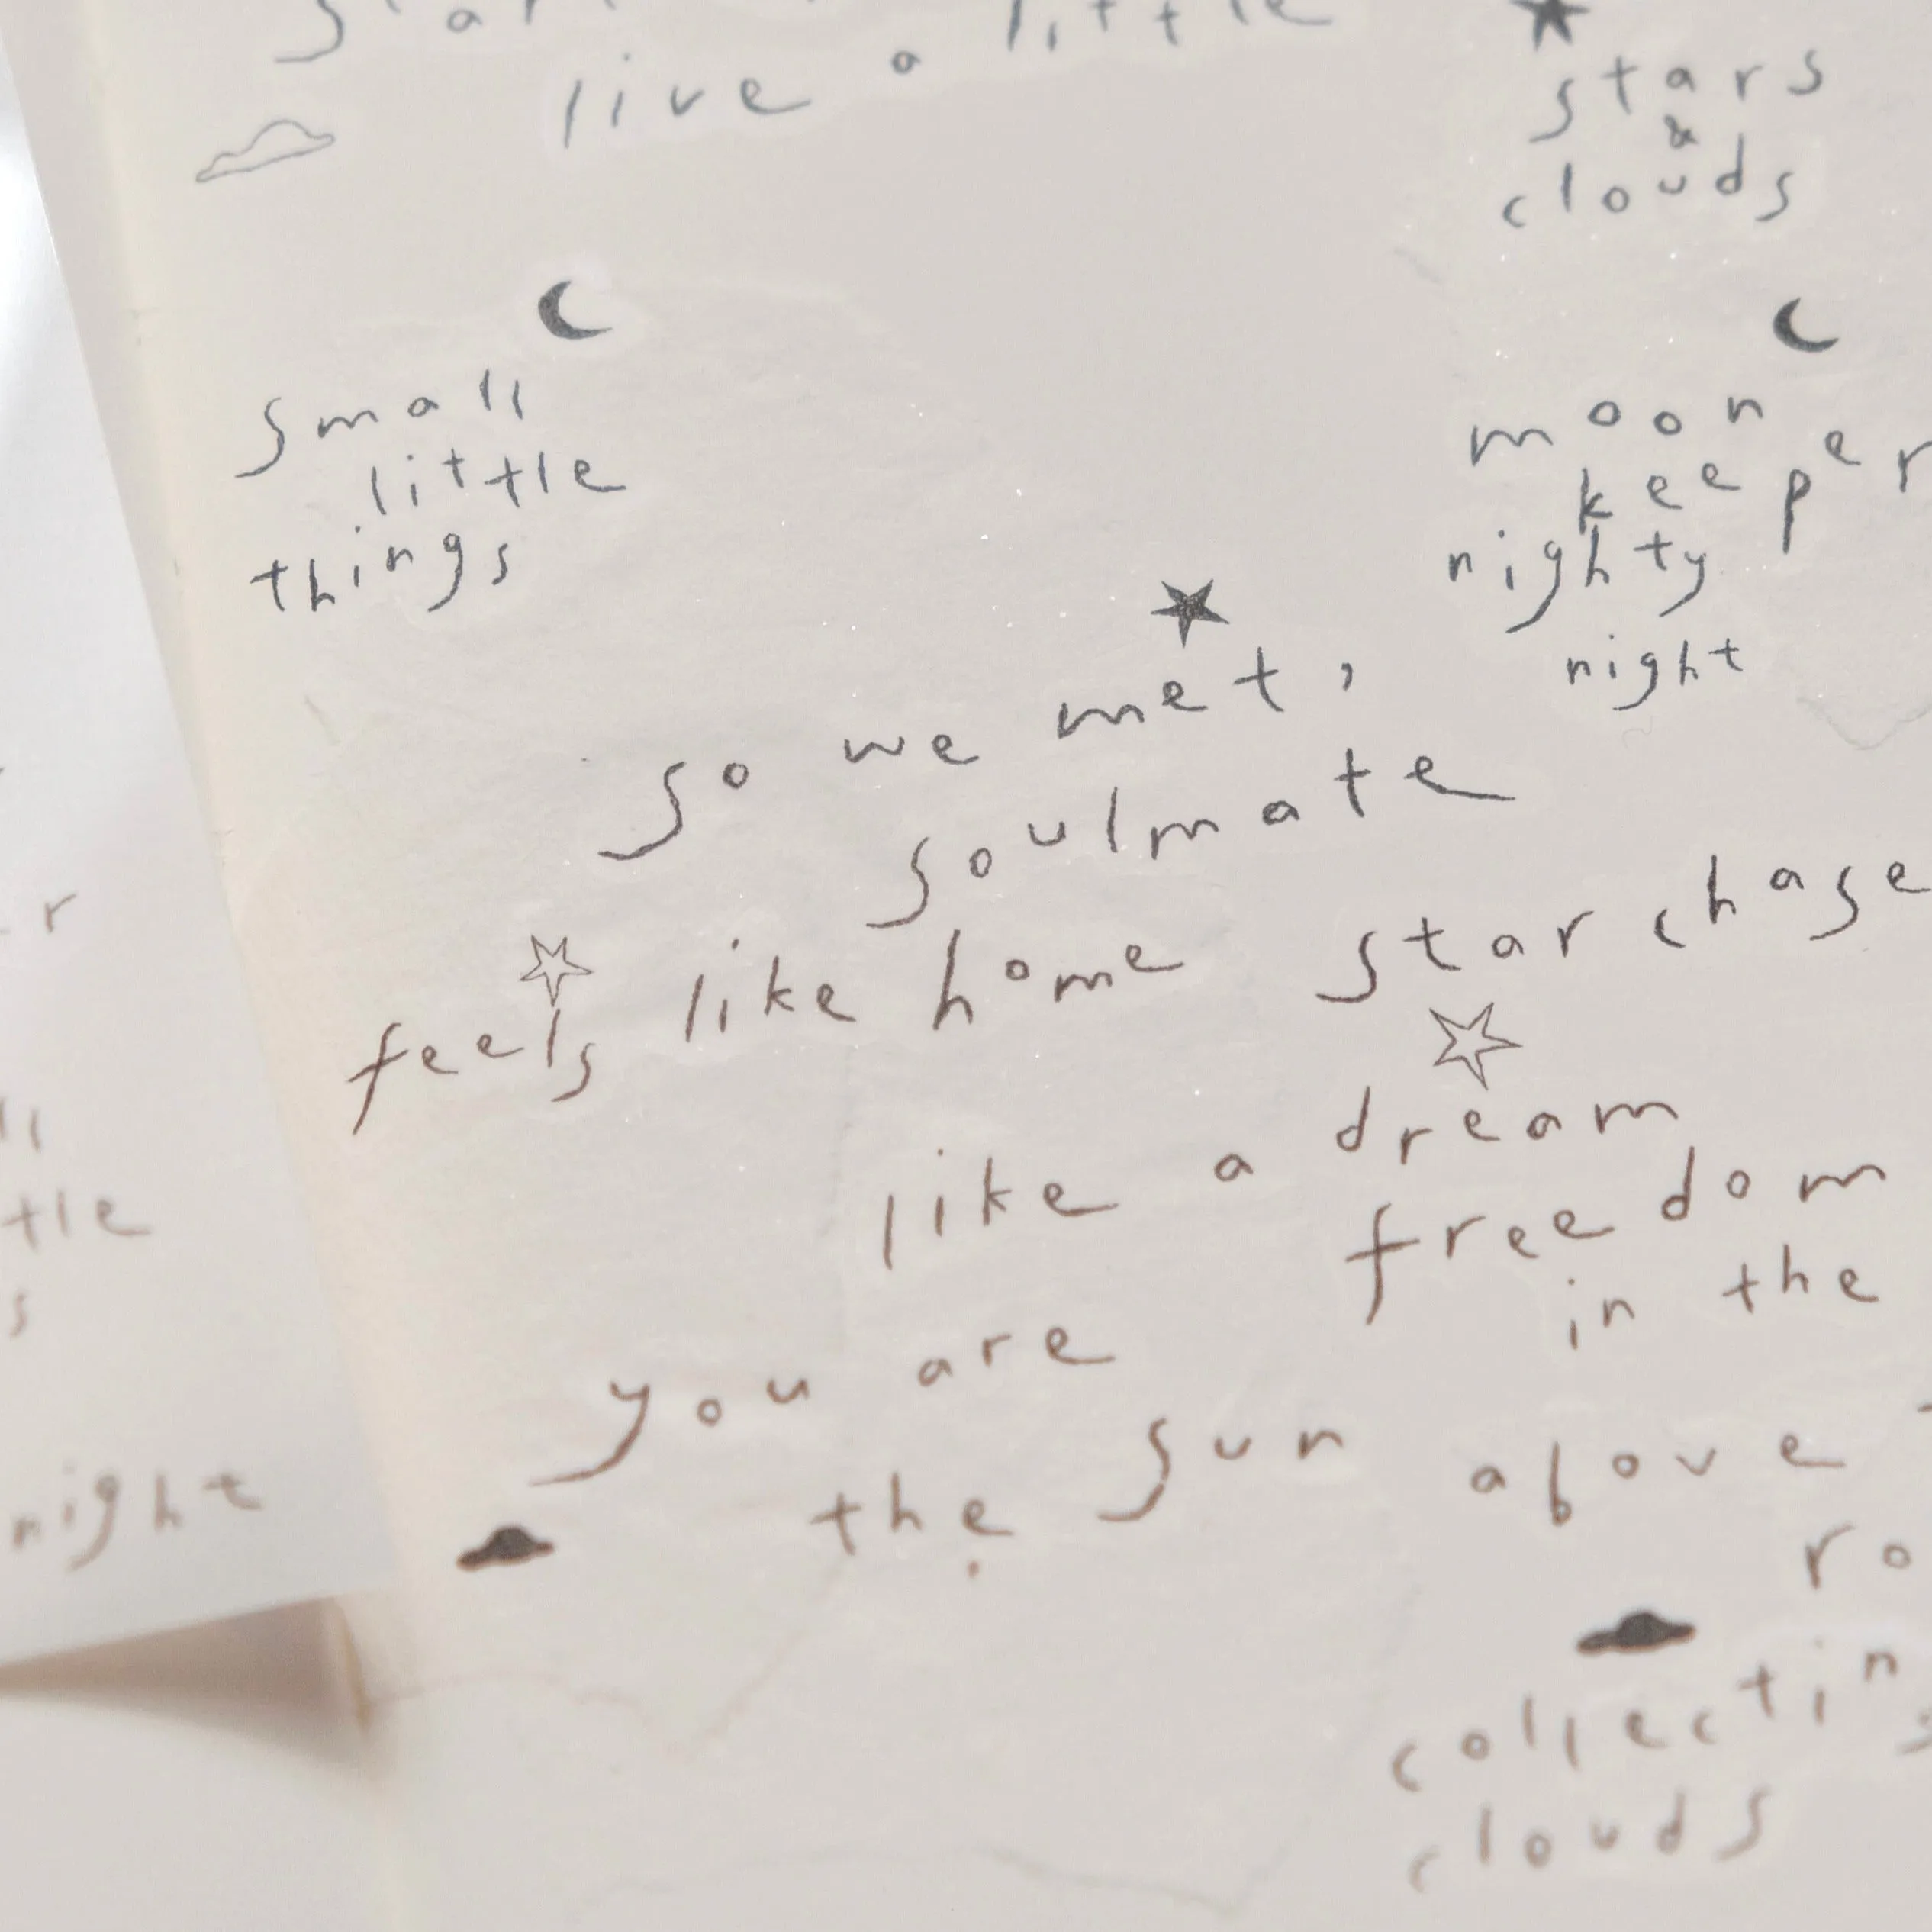 little
live a
stars
&
clouds
small
little
things
moon
keeper
nighty
night
so we met,
soulmate
feels like home
star chase
like a dream
freedom
in the
you are
the sun
above
collectin
clouds
tle
night